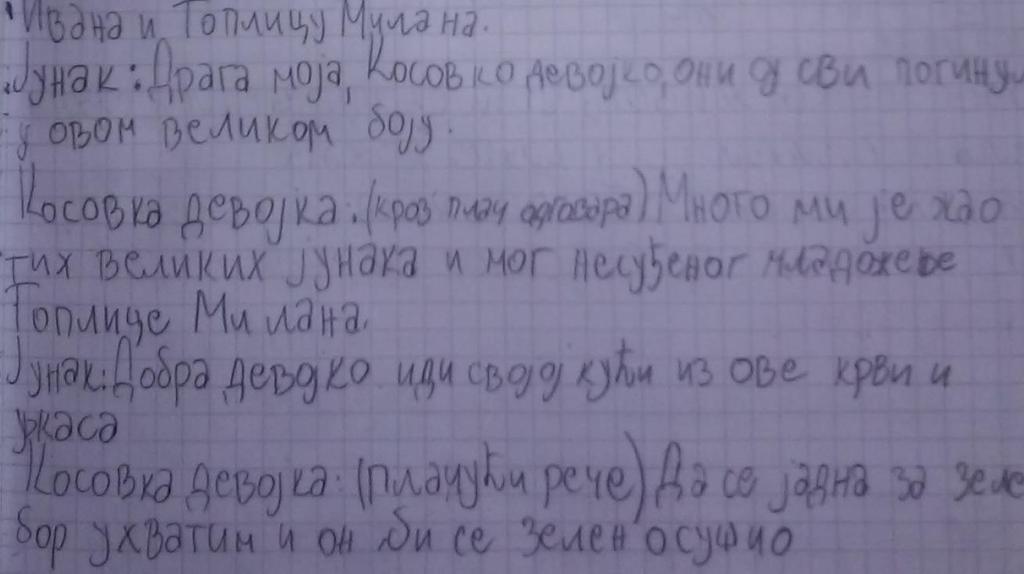 Ивана и Топлицу Милана.
Јунак: Драга моја, Косовко девојко, они су сви погинули
у овом великом боју.
Косовка девојка: (кроз плач одговара) Много ми је жао
тих великих јунака и мог несуђеног младожење
Топлице Милана.
Јунак: Добра девојко иди својој кући из ове крви и
ужаса
Косовка девојка: (плачући рече) Да се јадна за зеле
бор ухватим и он би се зелен осушио